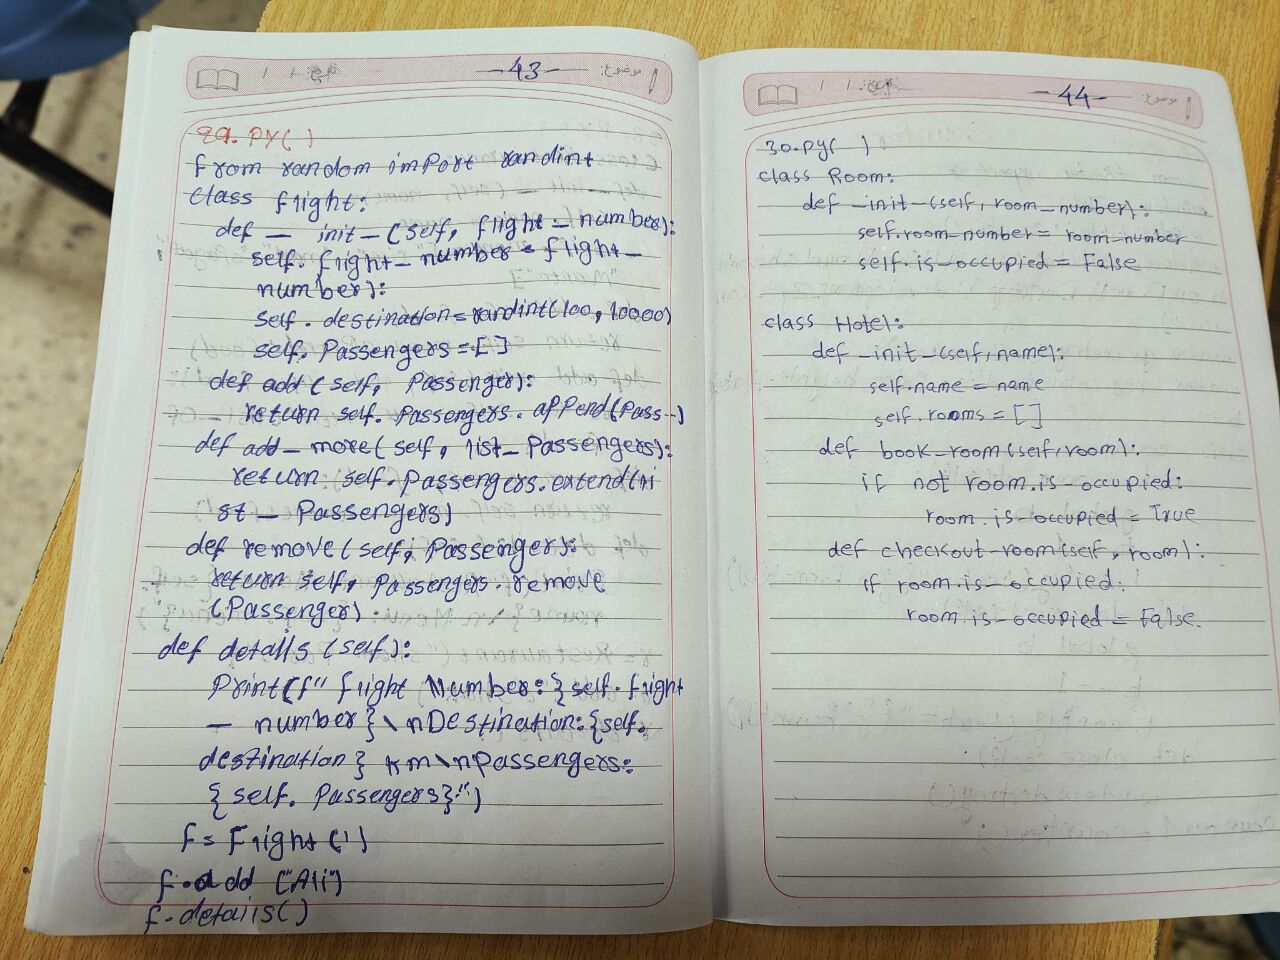 موضوع:
-43-
تاریخ: / /
29. PY( )
from random import randint
class flight:
def — init — (self, flight — number):
self. flight — number = flight —
number):
self. destination = randint(100, 10000)
self. Passengers = [ ]
def add (self, Passenger):
return self. Passengers. append(Pass--)
def add — more(self, list — Passengers):
return self. Passengers. extend(li
st — Passengers)
def remove(self, Passenger):
return self, Passengers. remove
(Passenger).
def details (self):
Print(f" flight Number: {self. flight
— number } \ nDestination: {self.
destination } Km\nPassengers:
{ self. Passengers}:")
f = Flight (1)
f. add ("Ali")
f. details()
موضوع:
-44-
تاریخ: / /
30.py( )
class Room:
def -init-(self, room_number):
self.room_number= room_number
self.is-occupied = False
class Hotel:
def -init-(self, name):
self.name = name
self.rooms = []
def book-room(self, room):
if not room.is-occupied:
room.is-occupied = True
def checkout-room(self, room):
if room.is-occupied:
room.is-occupied = False.